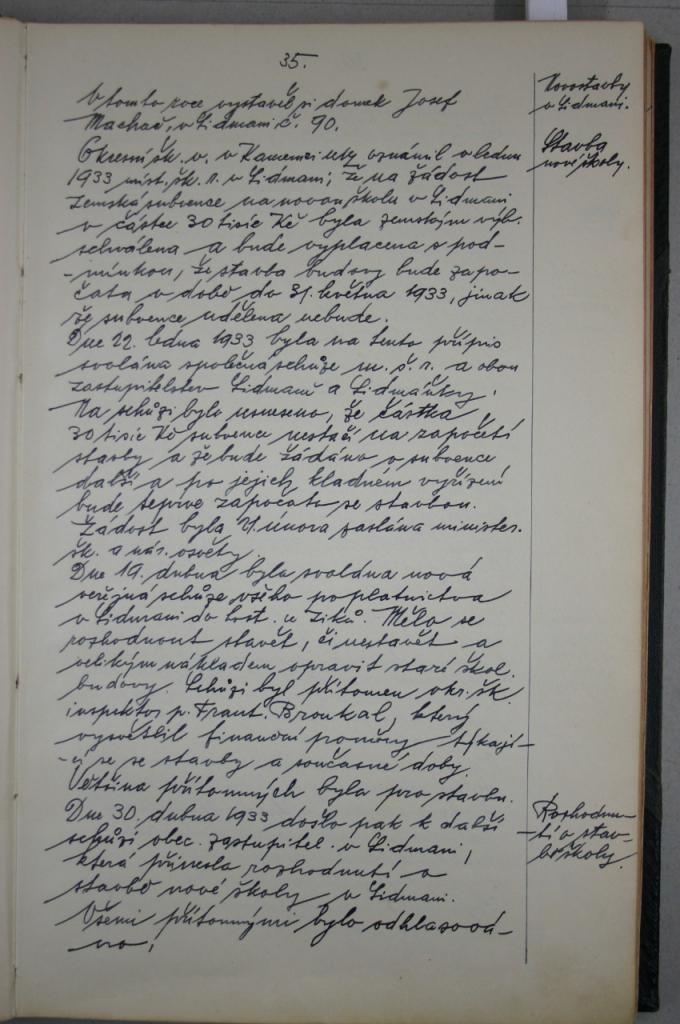 35.
V tomto roce vystavěl si domek Josef
Machač, v Lidmani č. 90.
Novostavby
v Lidmani.
Okresní šk. v. v Kamenici n/L. oznámil v lednu
1933 míst. šk. r. v Lidmani, že na žádost
zemská subvence na novou školu v Lidmani
v částce 30 tisíc Kč byla zemským výb.
schválena a bude vyplacena s pod-
-mínkou, že stavba budovy bude zapo-
čata v době do 31. května 1933, jinak
že subvence udělena nebude.
Stavba
nové školy.
Dne 22. ledna 1933 byla na tento přípis
svolána společná schůze m. š. r. a obou
zastupitelstev Lidmaně a Lidmaňky.
Na schůzi bylo usneseno, že částka
30 tisíc Kč subvence nestačí na započetí
stavby a že bude žádáno o subvence
další a po jejich kladném vyřízení
bude teprve započato se stavbou.
Žádost byla 4. února zaslána minister.
šk. a nár. osvěty.
Dne 19. dubna byla svolána nová
veřejná schůze všeho poplatnictva
v Lidmani do host. u Ziků. Mělo se
rozhodnout stavět, či nestavět a
velikým nákladem opravit staré škol.
budovy. Schůzi byl přítomen okr. šk.
inspektor p. Frant. Broukal, který
vysvětlil finanční poměry týkají-
-cí se se stavby a současné doby.
Většina přítomných byla pro stavbu.
Dne 30. dubna 1933 došlo pak k další
schůzi obec. zastupitel. v Lidmani,
která přinesla rozhodnutí o
stavbě nové školy v Lidmani.
Všemi přítomnými bylo odhlasová-
-no,
Rozhodnu-
-tí o stav-
bě školy.